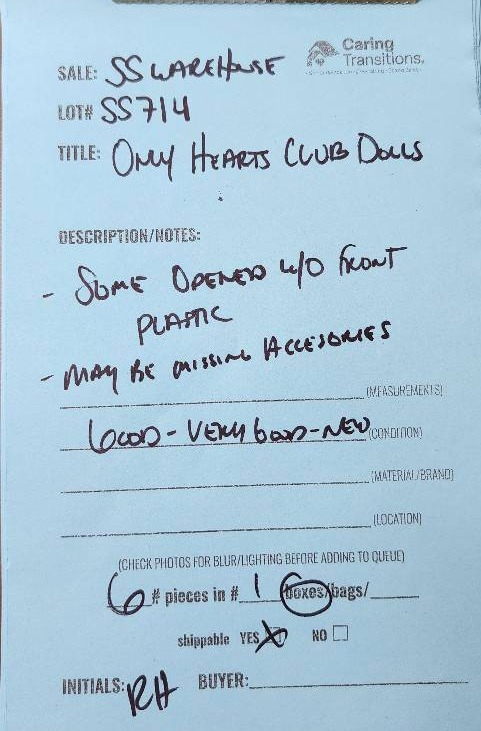 Caring
Transitions.
SALE: SS WAREHOUSE
LOT# SS714
TITLE: ONLY HEARTS CLUB DOLLS
DESCRIPTION/NOTES:
- SOME OPENED W/O FRONT
PLASTIC
- MAY BE MISSING ACCESORIES
(MEASUREMENTS)
GOOD - VERY GOOD - NEW (CONDITION)
(MATERIAL/BRAND)
(LOCATION)
(CHECK PHOTOS FOR BLUR/LIGHTING BEFORE ADDING TO QUEUE)
6 # pieces in # 1 boxes/bags/
shippable YES X NO
INITIALS: RH BUYER: